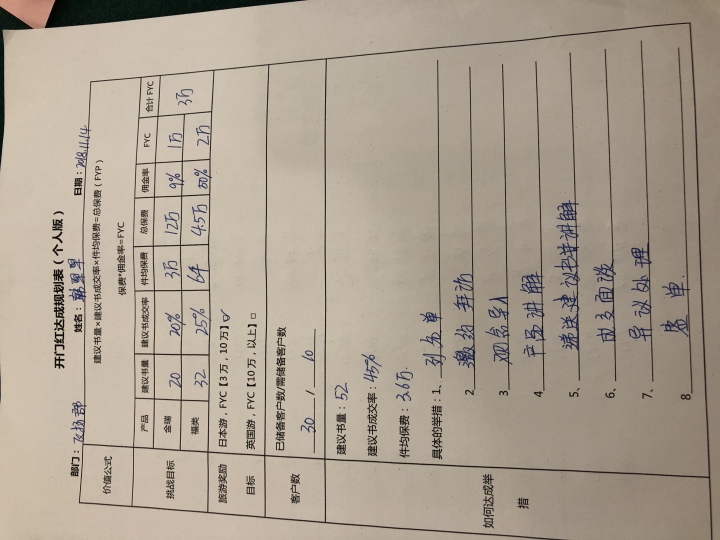 开门红达成规划表（个人版）
部门：飞扬部 姓名：韩翠翠 日期：2018.11.14
价值公式 建议书量×建议书成交率×件均保费=总保费（FYP）
保费*佣金率=FYC
挑战目标 产品 建议书量 建议书成交率 件均保费 总保费 佣金率 FYC 合计FYC
金瑞 20 20% 3万 12万 9% 1万 3万
福类 32 25% 6千 4.5万 50% 2万
旅游奖励 日本游，FYC【3万，10万】☑
目标 英国游，FYC【10万，以上】□
客户数 已储备客户数/需储备客户数
30 / 10
如何达成举措 建议书量：52
建议书成交率：45%
件均保费：3.6万
具体的举措：1、列名单
2 邀约 拜访
3 观念导入
4 产品讲解
5、递送建议书并讲解
6、成交面谈
7、异议处理
8 签单.